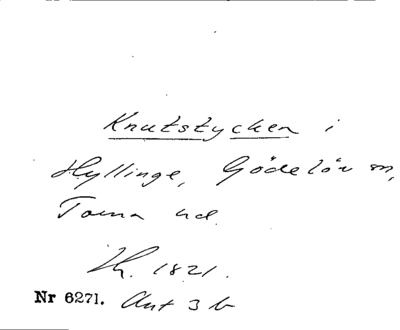 Knutstycken i
Hyllinge, Gödelöv sn,
Torna hd.
Th. 1821.
Nr 6271. Ant 3 b